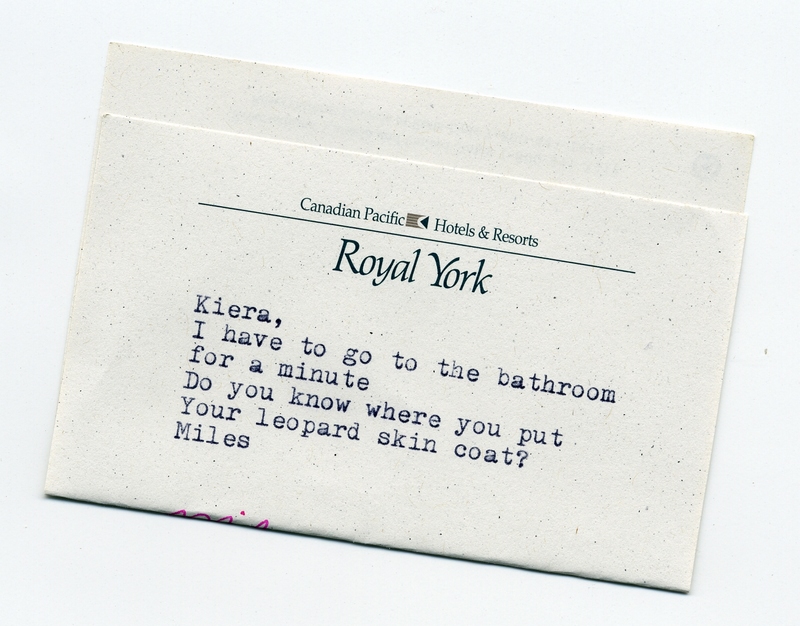 Canadian Pacific Hotels & Resorts
Royal York
Kiera,
I have to go to the bathroom
for a minute
Do you know where you put
Your leopard skin coat?
Miles